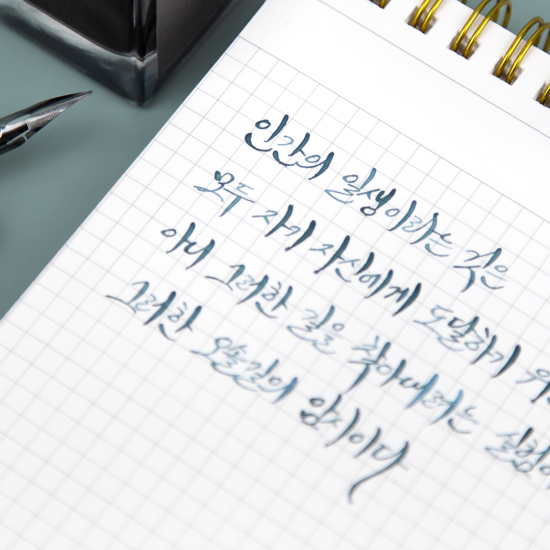 인간의 일생이라는 것은
모두 자기 자신에게 도달하기
아니 그러한 길을 찾아내려는 실험
그러한 오솔길의 암시이다